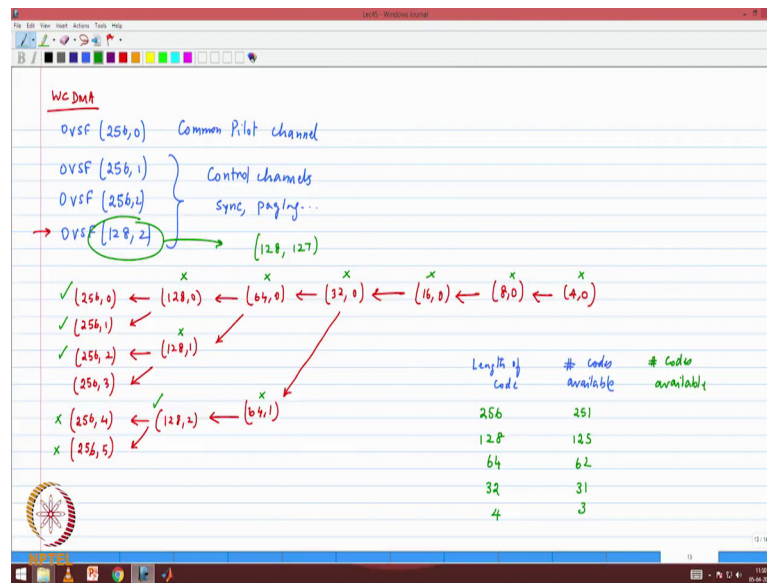 Lec45 - Windows Journal
File Edit View Insert Actions Tools Help
B I
WCDMA
OVSF (256,0) Common Pilot channel
OVSF (256,1)
OVSF (256,2)
→ OVSF (128,2) → (128,127)
Control channels
sync, paging...
x x x x x x
✓ (256,0) ← (128,0) ← (64,0) ← (32,0) ← (16,0) ← (8,0) ← (4,0)
✓ (256,1)
x
✓ (256,2) ← (128,1)
(256,3)
✓ x
x (256,4) ← (128,2) ← (64,1)
x (256,5)
Length of code # codes available # codes available
256 251
128 125
64 62
32 31
4 3
NPTEL
13